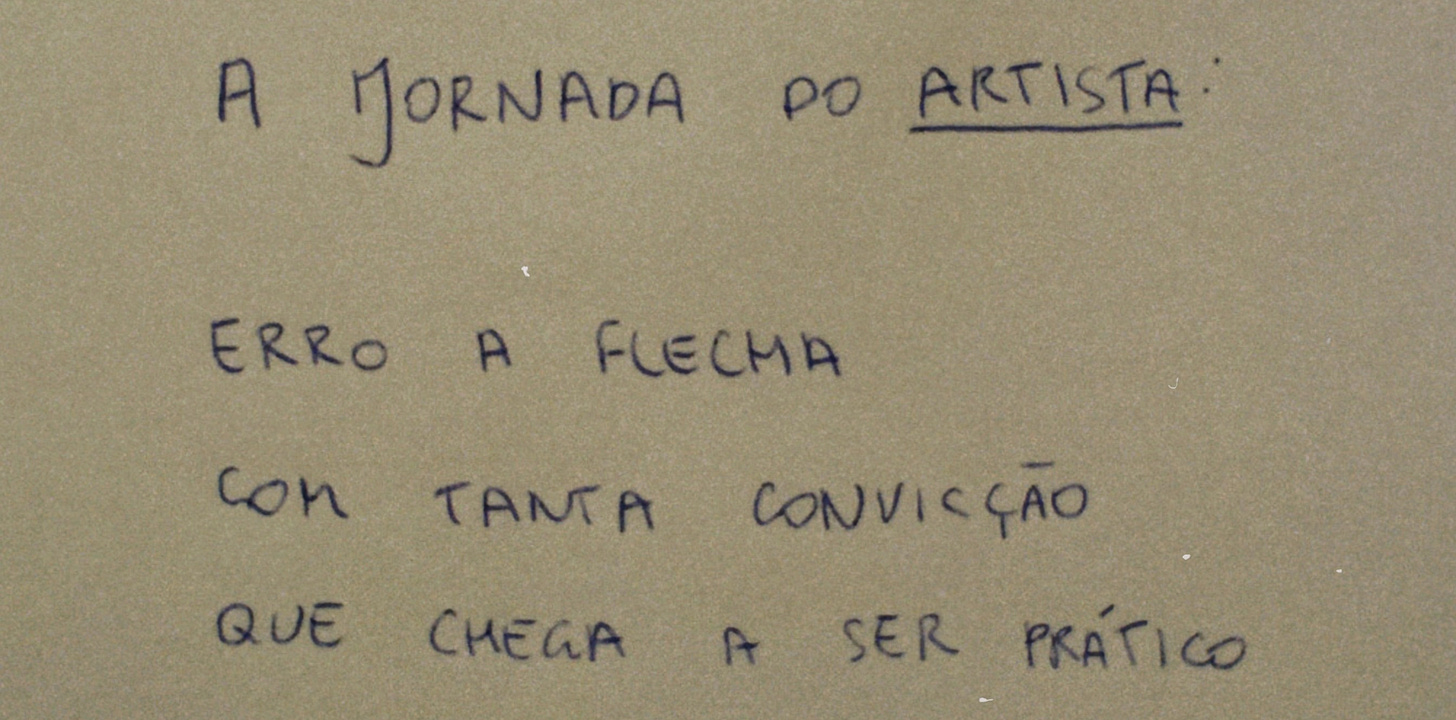 A JORNADA DO ARTISTA:
ERRO A FLECHA
COM TANTA CONVICÇÃO
QUE CHEGA A SER PRÁTICO